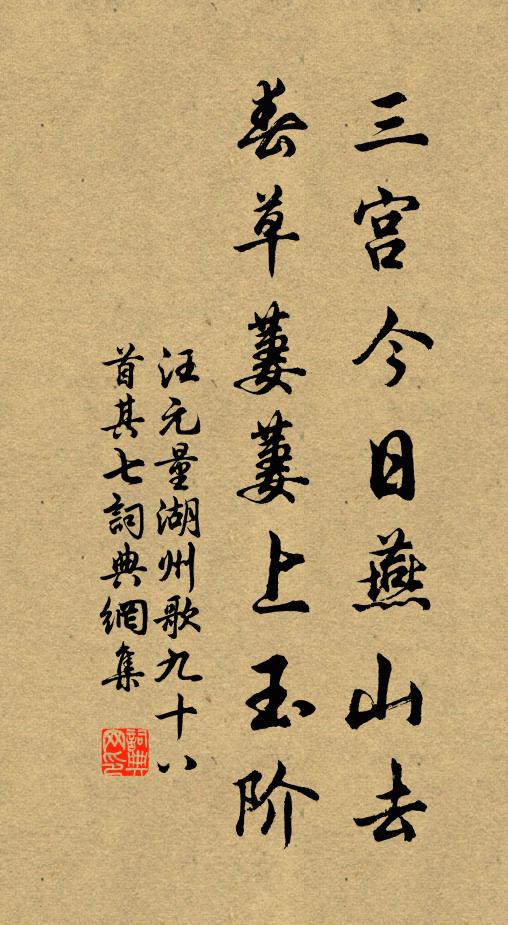 三宫今日燕山去
春草萋萋上玉阶
汪元量湖州歌九十八
首其七詞典網集
詞典
网印